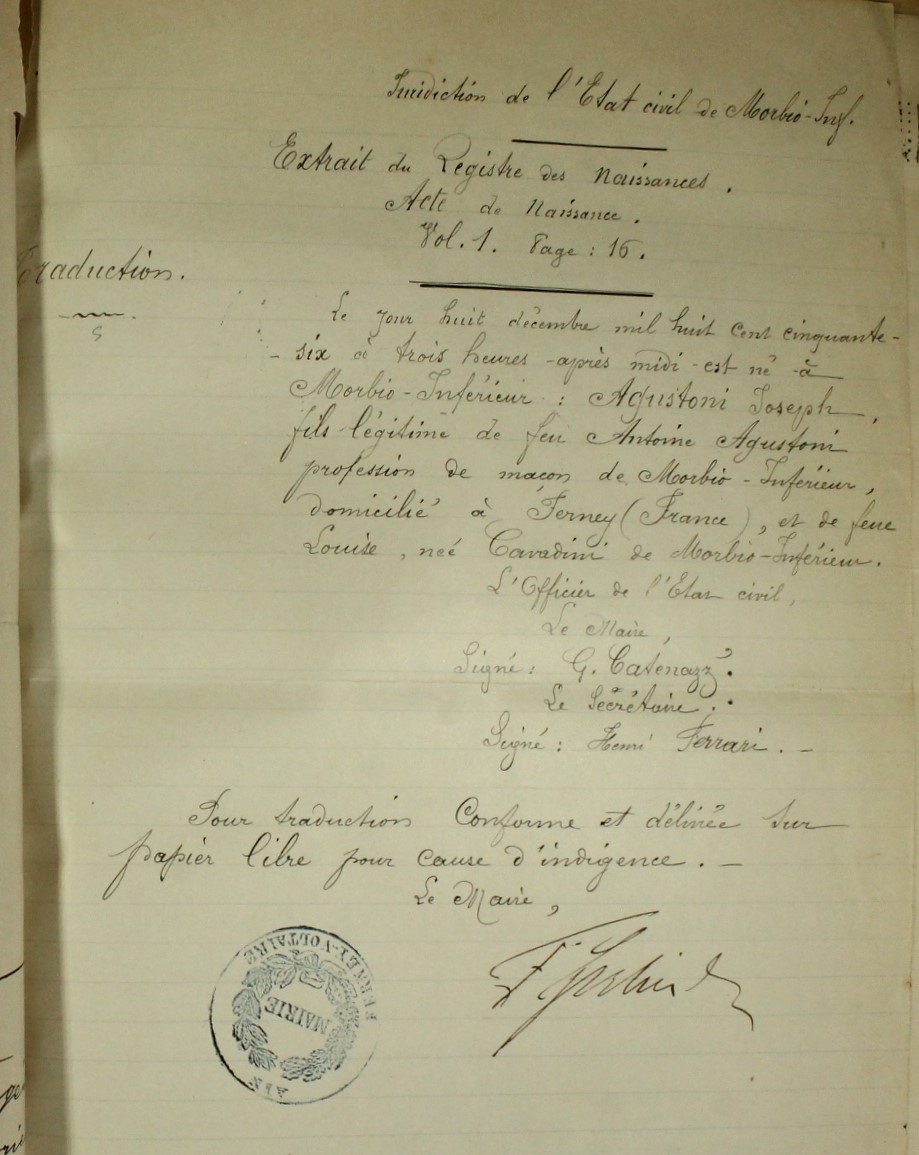 Juridiction de l'Etat civil de Morbio-Inf.
Extrait du Registre des Naissances.
Acte de Naissance.
Vol. 1. Page: 16.
Traduction.
Le jour huit décembre mil huit cent cinquante-
- six à trois heures -après midi -est né -à
Morbio-Inférieur : Agustoni Joseph,
fils légitime de feu Antoine Agustoni
profession de maçon de Morbio-Inférieur,
domicilié à Ferney (France), et de feue
Louise, neé Cavadini de Morbio-Inférieur.
L'Officier de l'Etat civil,
Le Maire,
Signé: G. Catenazzi.
Le Secrétaire,
Signé: Henri Ferrari. -
Pour traduction Conforme et délivrée sur
papier libre pour cause d'indigence. -
Le Maire,
FERNEY-VOLTAIRE
MAIRIE
AIN